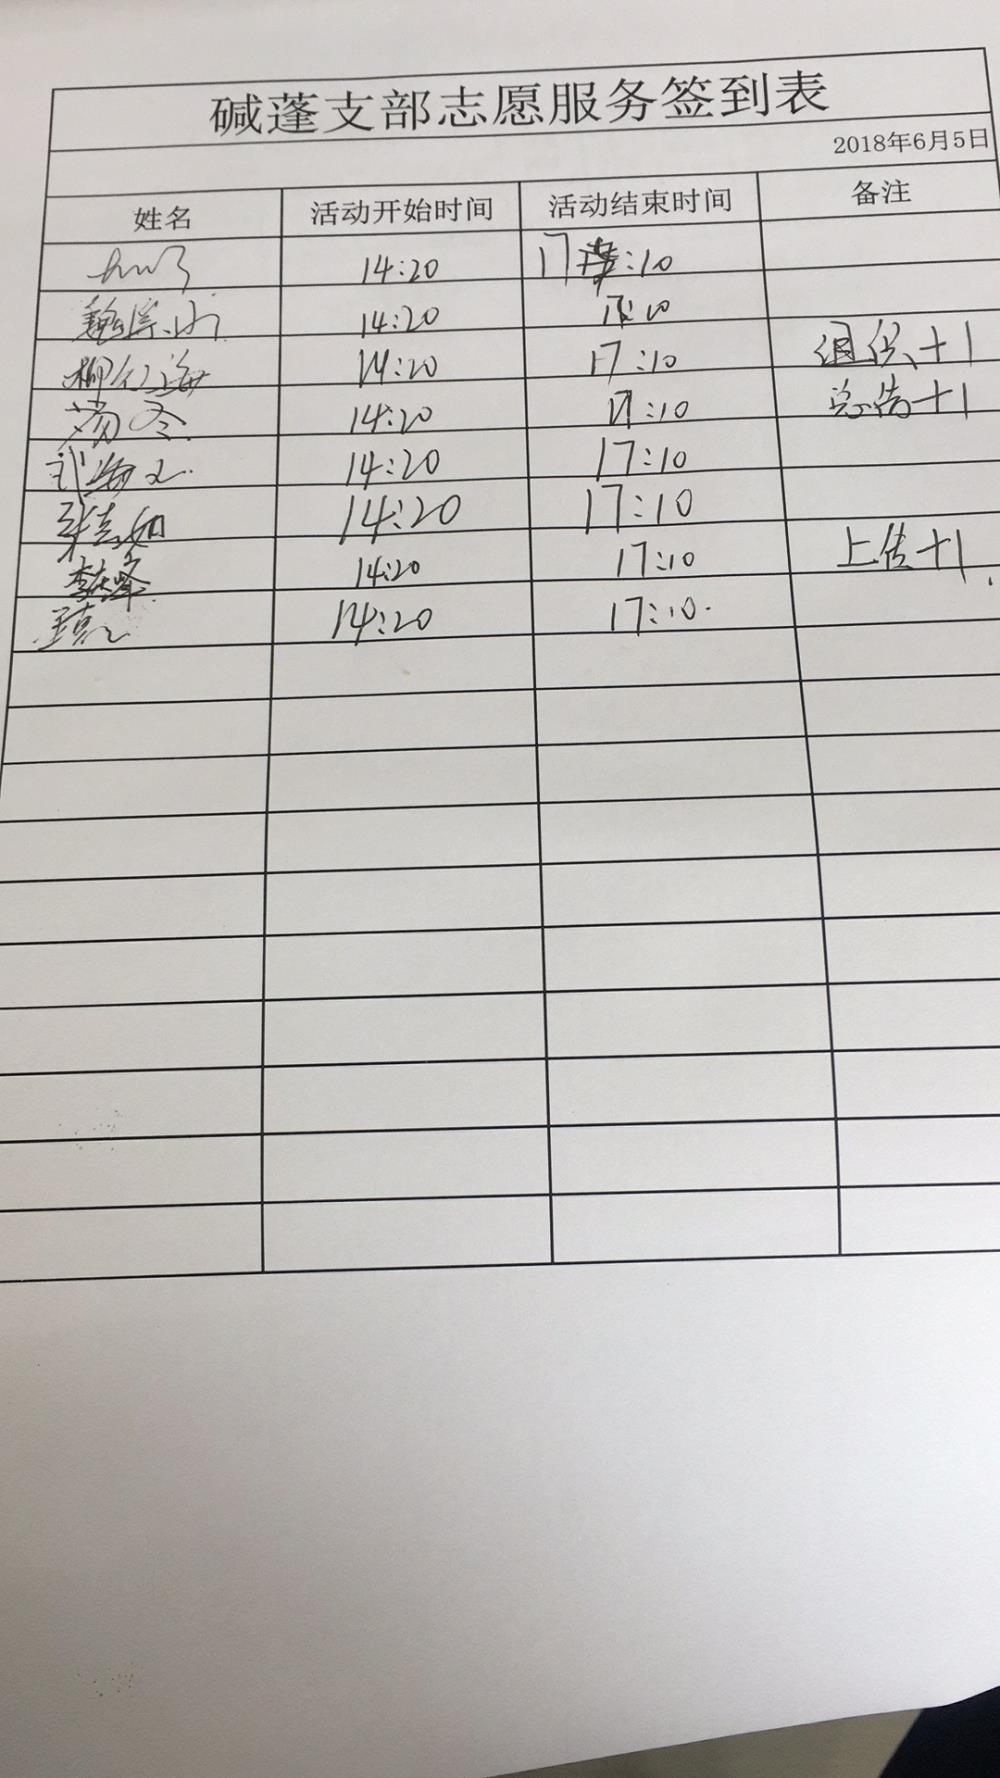 碱蓬支部志愿服务签到表
2018年6月5日
姓名 活动开始时间 活动结束时间 备注
14:20 17:10
14:20 17:10
柳红海 14:20 17:10 组织+1
杨冬 14:20 17:10 总结+1
14:20 17:10
张志如 14:20 17:10
李峰 14:20 17:10 上传+1
14:20 17:10.